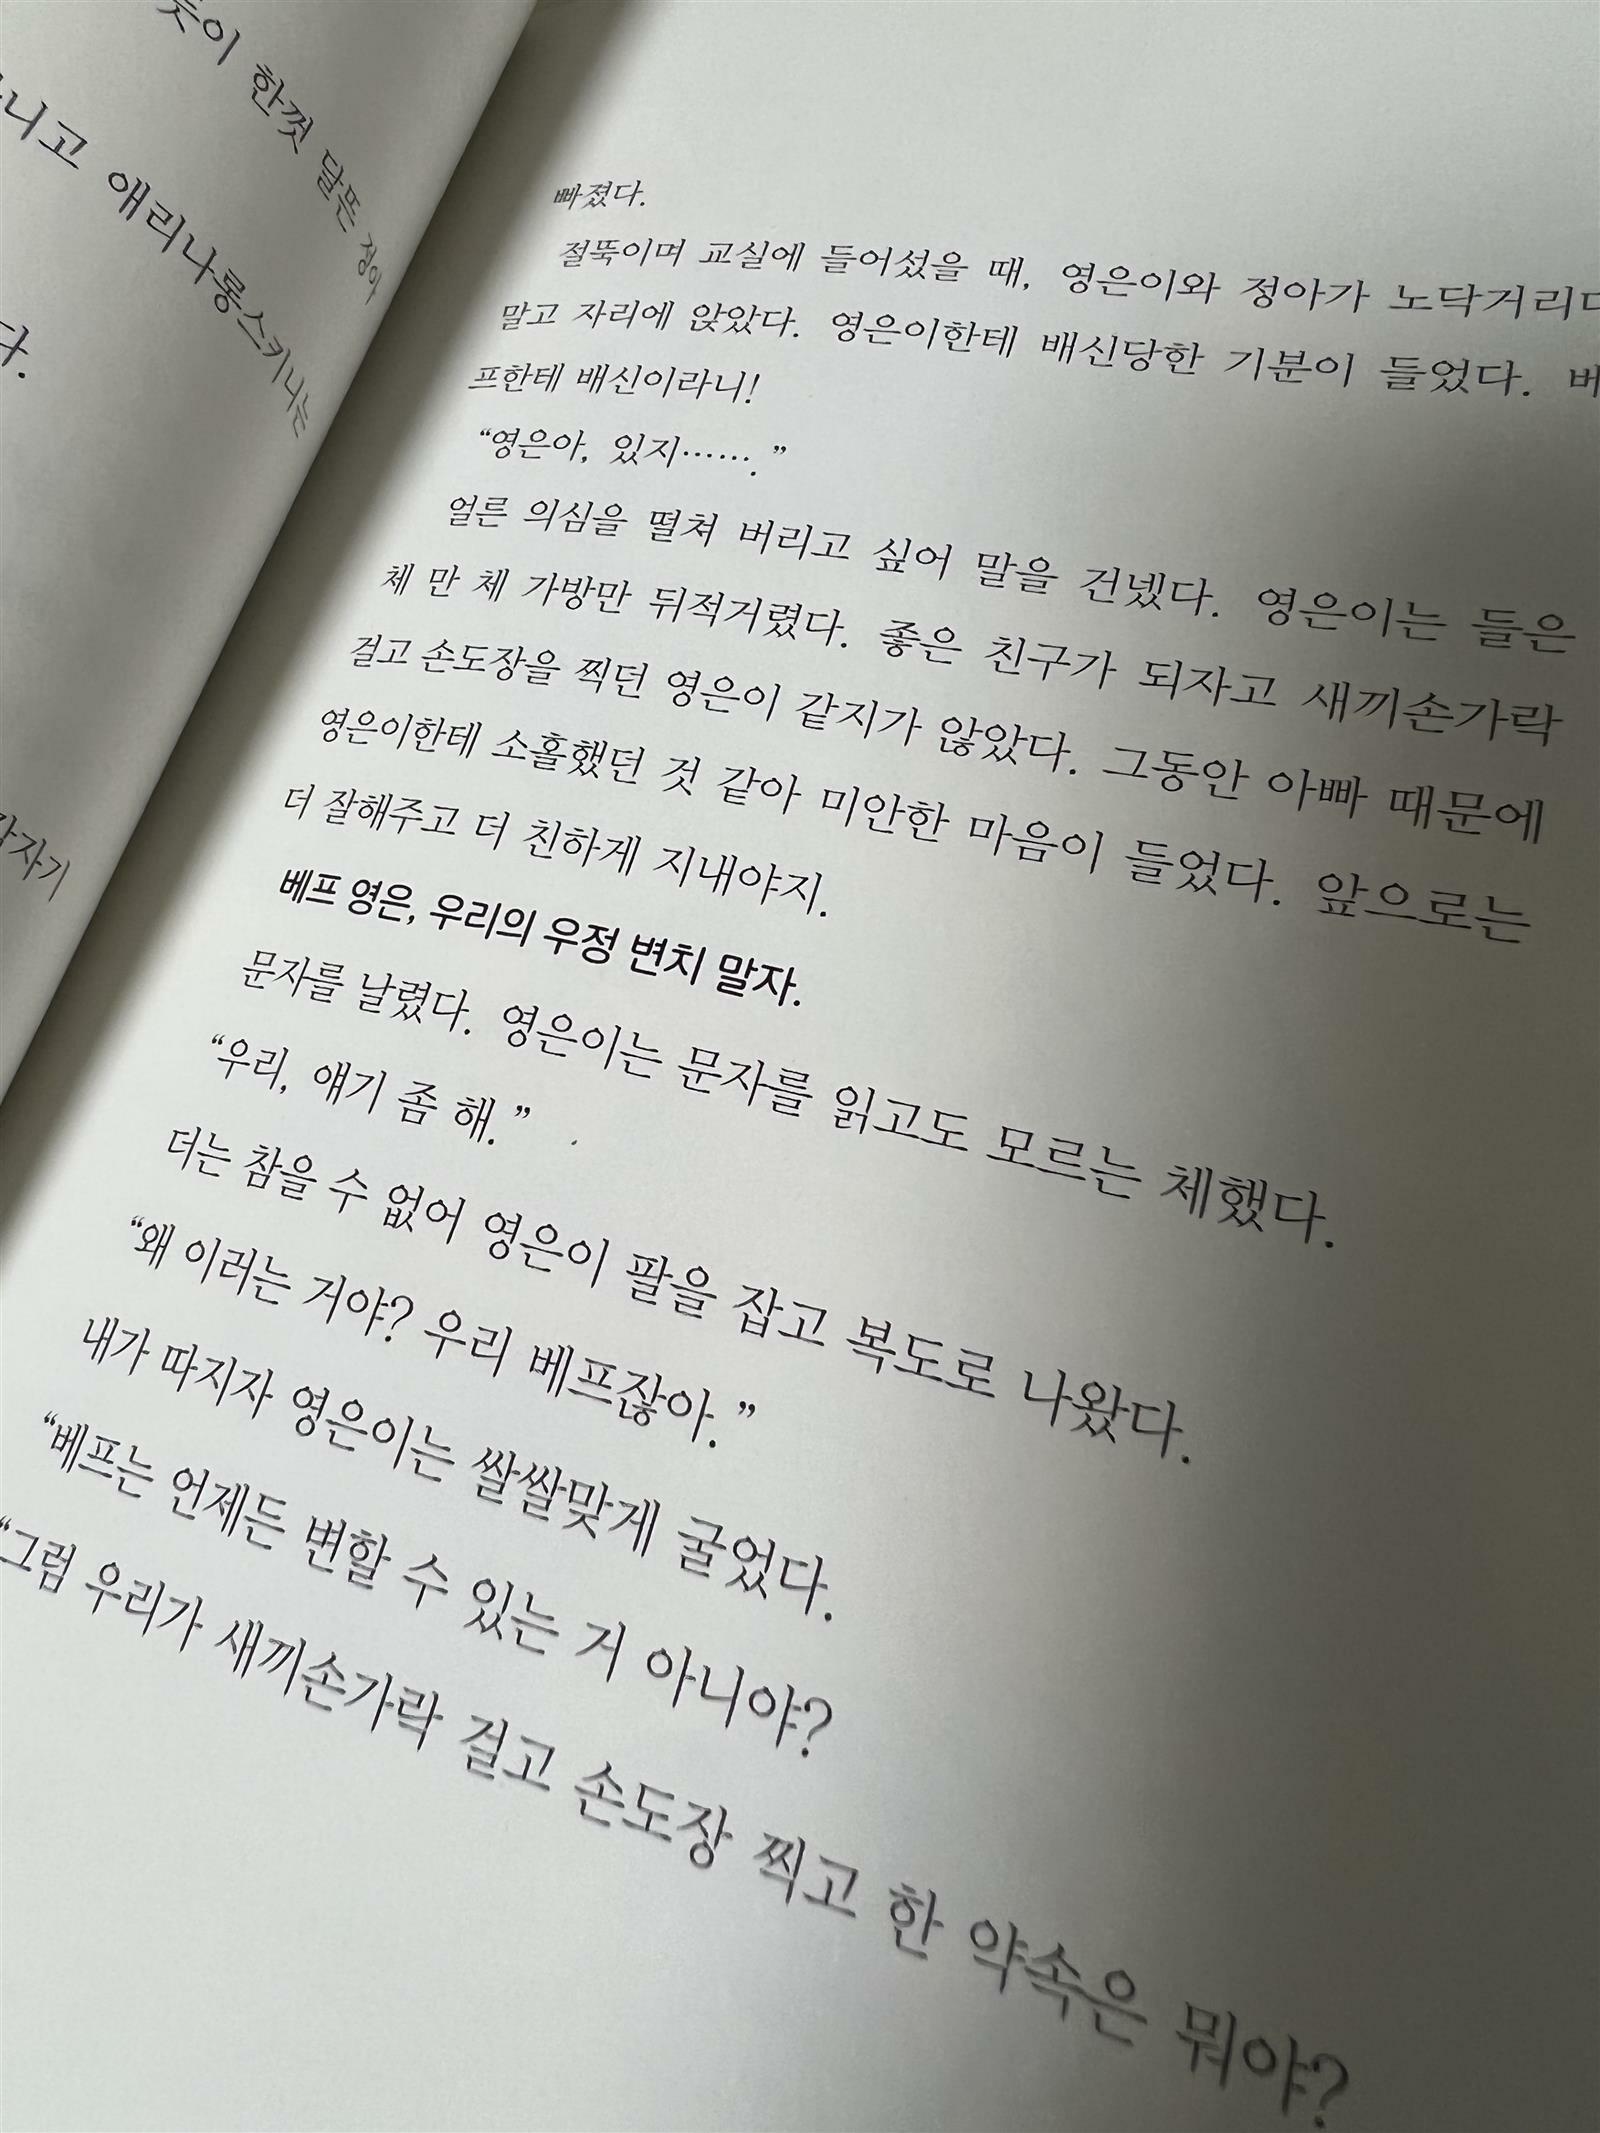 한껏 달뜬 정아
니고 애리나롱스키니는
다.
갑자기
빠졌다.
절뚝이며 교실에 들어섰을 때, 영은이와 정아가 노닥거리다
말고 자리에 앉았다. 영은이한테 배신당한 기분이 들었다. 베
프한테 배신이라니!
“영은아, 있지…….”
얼른 의심을 떨쳐 버리고 싶어 말을 건넸다. 영은이는 들은
체 만 체 가방만 뒤적거렸다. 좋은 친구가 되자고 새끼손가락
걸고 손도장을 찍던 영은이 같지가 않았다. 그동안 아빠 때문에
영은이한테 소홀했던 것 같아 미안한 마음이 들었다. 앞으로는
더 잘해주고 더 친하게 지내야지.
베프 영은, 우리의 우정 변치 말자.
문자를 날렸다. 영은이는 문자를 읽고도 모르는 체했다.
“우리, 얘기 좀 해.”
더는 참을 수 없어 영은이 팔을 잡고 복도로 나왔다.
“왜 이러는 거야? 우리 베프잖아.”
내가 따지자 영은이는 쌀쌀맞게 굴었다.
“베프는 언제든 변할 수 있는 거 아니야?
“그럼 우리가 새끼손가락 걸고 손도장 찍고 한 약속은 뭐야?